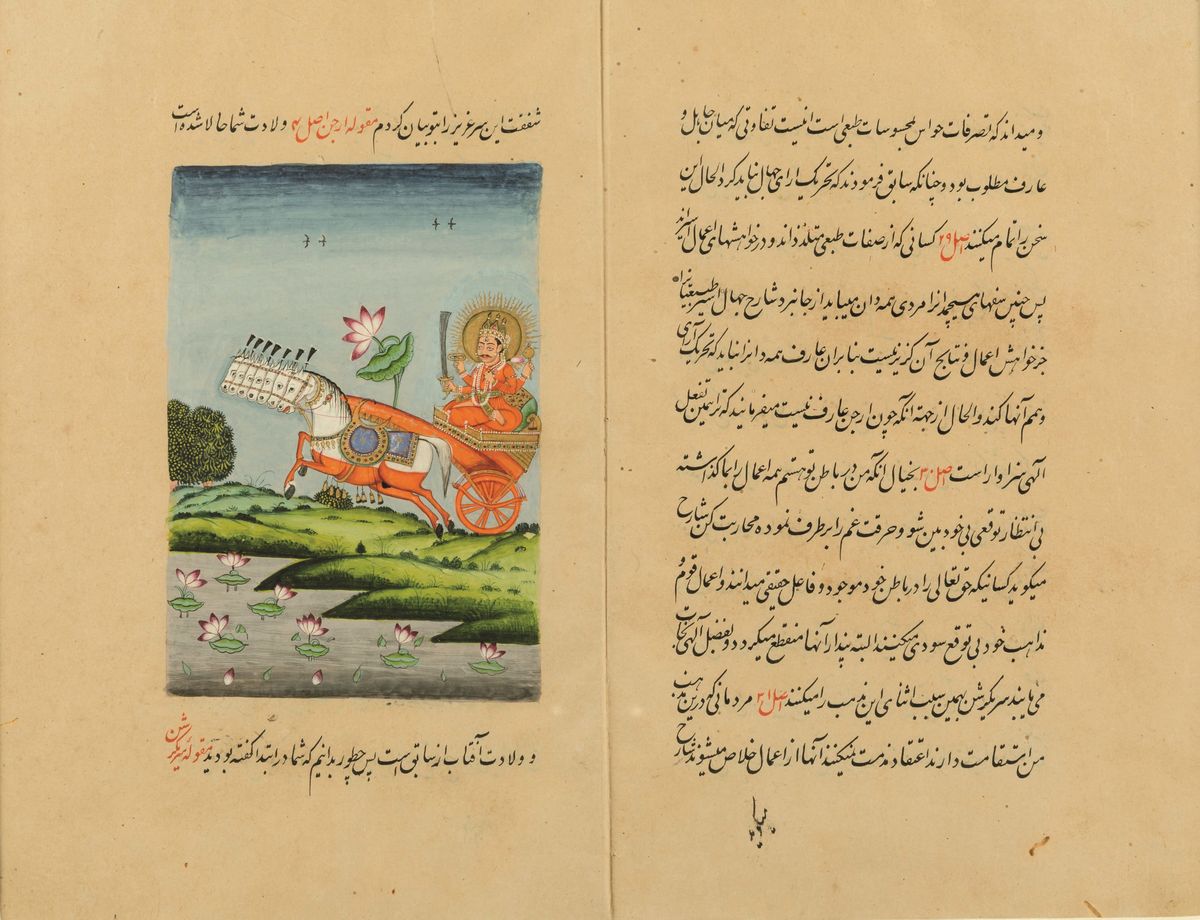 و میداند که تصرفات حواس بمحسوسات طبعی است اینست تفاوتی که میان جاهل و
عارف مطلوب بود و چنانکه سابق فرمودند که تحریک ارای جهال نباید کرد الحال این
سخن را تمام میکنند اصل ۲۹ کسانی که از صفات طبعی متلذذاند و در خواهشهای اعمال اسیراند
پس چنین سفهای هیچمدانرا مردی همه دان میباید از جا نبرد شارح جهال اسیر طبیعتیانرا
جز خواهش اعمال و نتایج آن گزیر نیست بنابران عارف همه دانرا نباید که تحریک رای
وهم آنها کند والحال از جهة آنکه چون ارجن عارف نیست میفرمایند که ترا همین تفعل
الهی سزاوار است اصل ۳۰ بخیال آنکه من در باطن تو هستم همه اعمال رابما گذاشته
بی انتظار توقعی بی خود بین شو و حرقت غم را برطرف نموده محاربت کن شارح
میگوید کسانیکه حق تعالی را در باطن خود موجود و فاعل حقیقی میدانند و اعمال قوم و
مذاهب خود بی توقع سودی میکنند البته پندار آنها منقطع میگردد و بفضل آلهی نجات
می یابند سریکرشن بهمین سبب اثنای این مذهب را میکنند اصل ۳۱ مردمانی که درین مذهب
من استقامت دارند اعتقاد مذمت نمیکنند آنها از اعمال خلاص میشوند شارح
میگوید
شفقت این سر عزیز را بتو بیان کردم مقوله ارجن اصل ۴ ولادت شما حالا شده است
و ولادت آفتاب از سابق است پس چطور بدانیم که شما در ابتدا گفته بودید مقوله سریکرشن